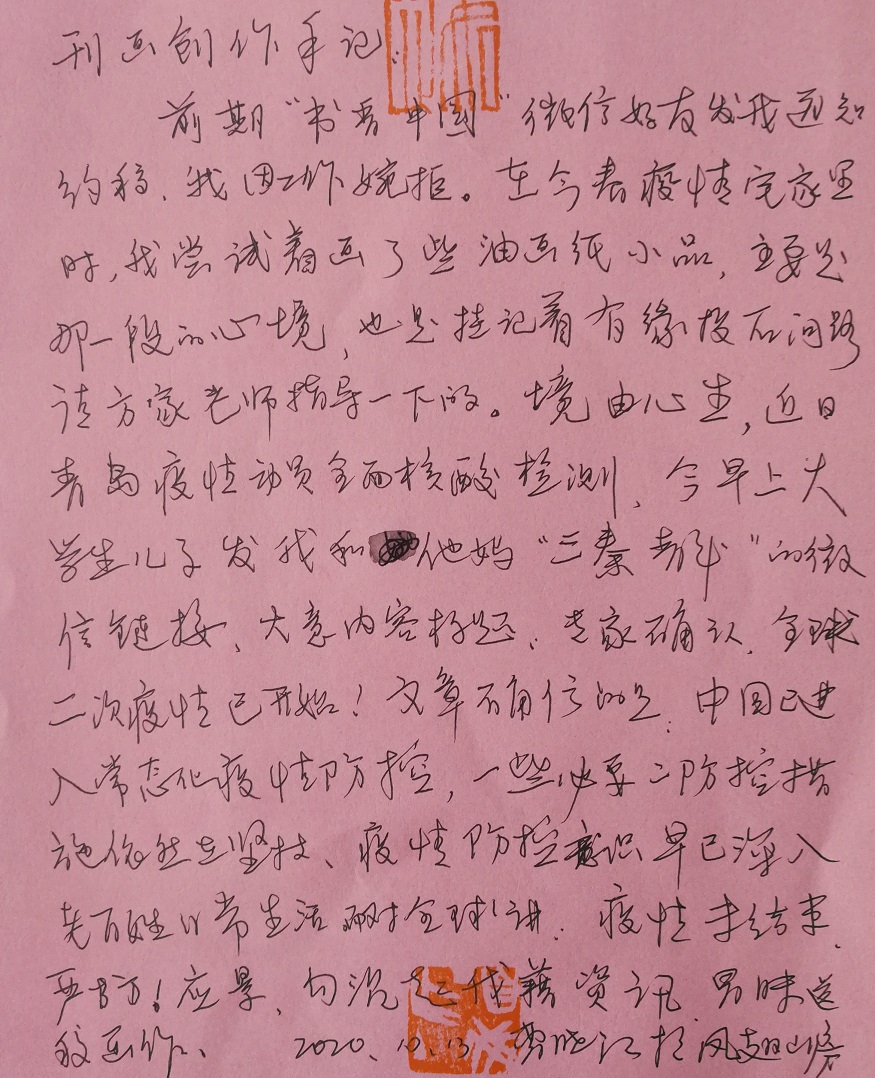 刊画创作手记:
前期“书香中国”微信好友发我通知
约稿、我因工作婉拒。在今春疫情宅家里
时,我尝试着画了些油画纸小品,主要是
那一段的心境,也是挂记着有缘投石问路
请方家老师指导一下的。境由心生,近日
青岛疫情动员全面核酸检测,今早上大
学生儿子发我和他妈“三秦都市”的微
信链接、大意内容标题:专家确认,全球
二次疫情已开始!文章不确信的是:中国已进
入常态化疫情防控,一些必要的防控措
施依然在坚持、疫情防控意识早已深入
老百姓日常生活 对全球讲:疫情未结束
严防!应景、勾沉起我藉资讯
我画作、 2020.10.13